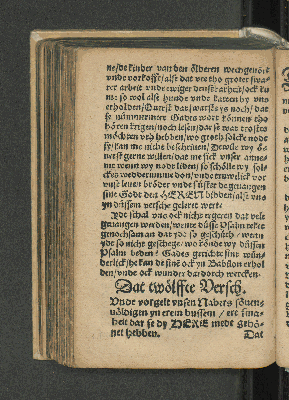 ne/de kinder van den ölderen wechgenört
vnde vorkofft/alse dat vee tho groter swa-
rer arbeit vnde ewiger denstbarheit/ock ku
me so wol alse hunde vnde katten by vns
erholden/Querst dat/war se ys noch/dat
se nümmermere Gades wort können tho
hören krigen/noch lesen/dar se war trostes
möchten vth hebben/wo groth solcke nodt
sy/kan me nicht beschriuen/Dewile wy de
nerst gerne willen/dat me sick vnser anne-
me wenn wy nodt liden/so schölle wy sol-
ckes wedderumme don/vnde truwelick vor
vnse leuer bröder vnde süster de gefangen
sint Godt den HEREN bidden/alse vns
yn düssem versche geleret wert.
Ydt schal vns ock nicht ergeren dat vele
gefangen werden/wente düsse Psalm rekent
genochsam an dat ydt so geschüth/wenn
ydt so nicht geschege/wo könde wy düssen
Psalm beden? Gades gerichte sint wün-
derlick/he kan de sine ock yn Babilon erhol
den/vnde ock wunder dardorch wercken.
Dat twölffte Versch.
Vnde vorgelt vnsen Nabers söuen-
uöldigen yn eren bussem/ere sma-
heit dar se dy HERE mede gehö-
net hebben. Dat